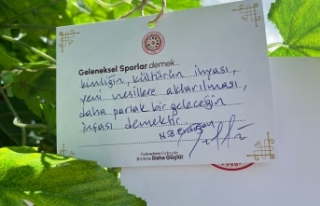 Geleneksel Sporlar demek...
kimliğin, kültürün ihyası,
yeni nesillere aktarılması,
daha parlak bir geleceğin
inşası demektir.
N.B. Erdoğan
Birlikte Daha Güçlü!